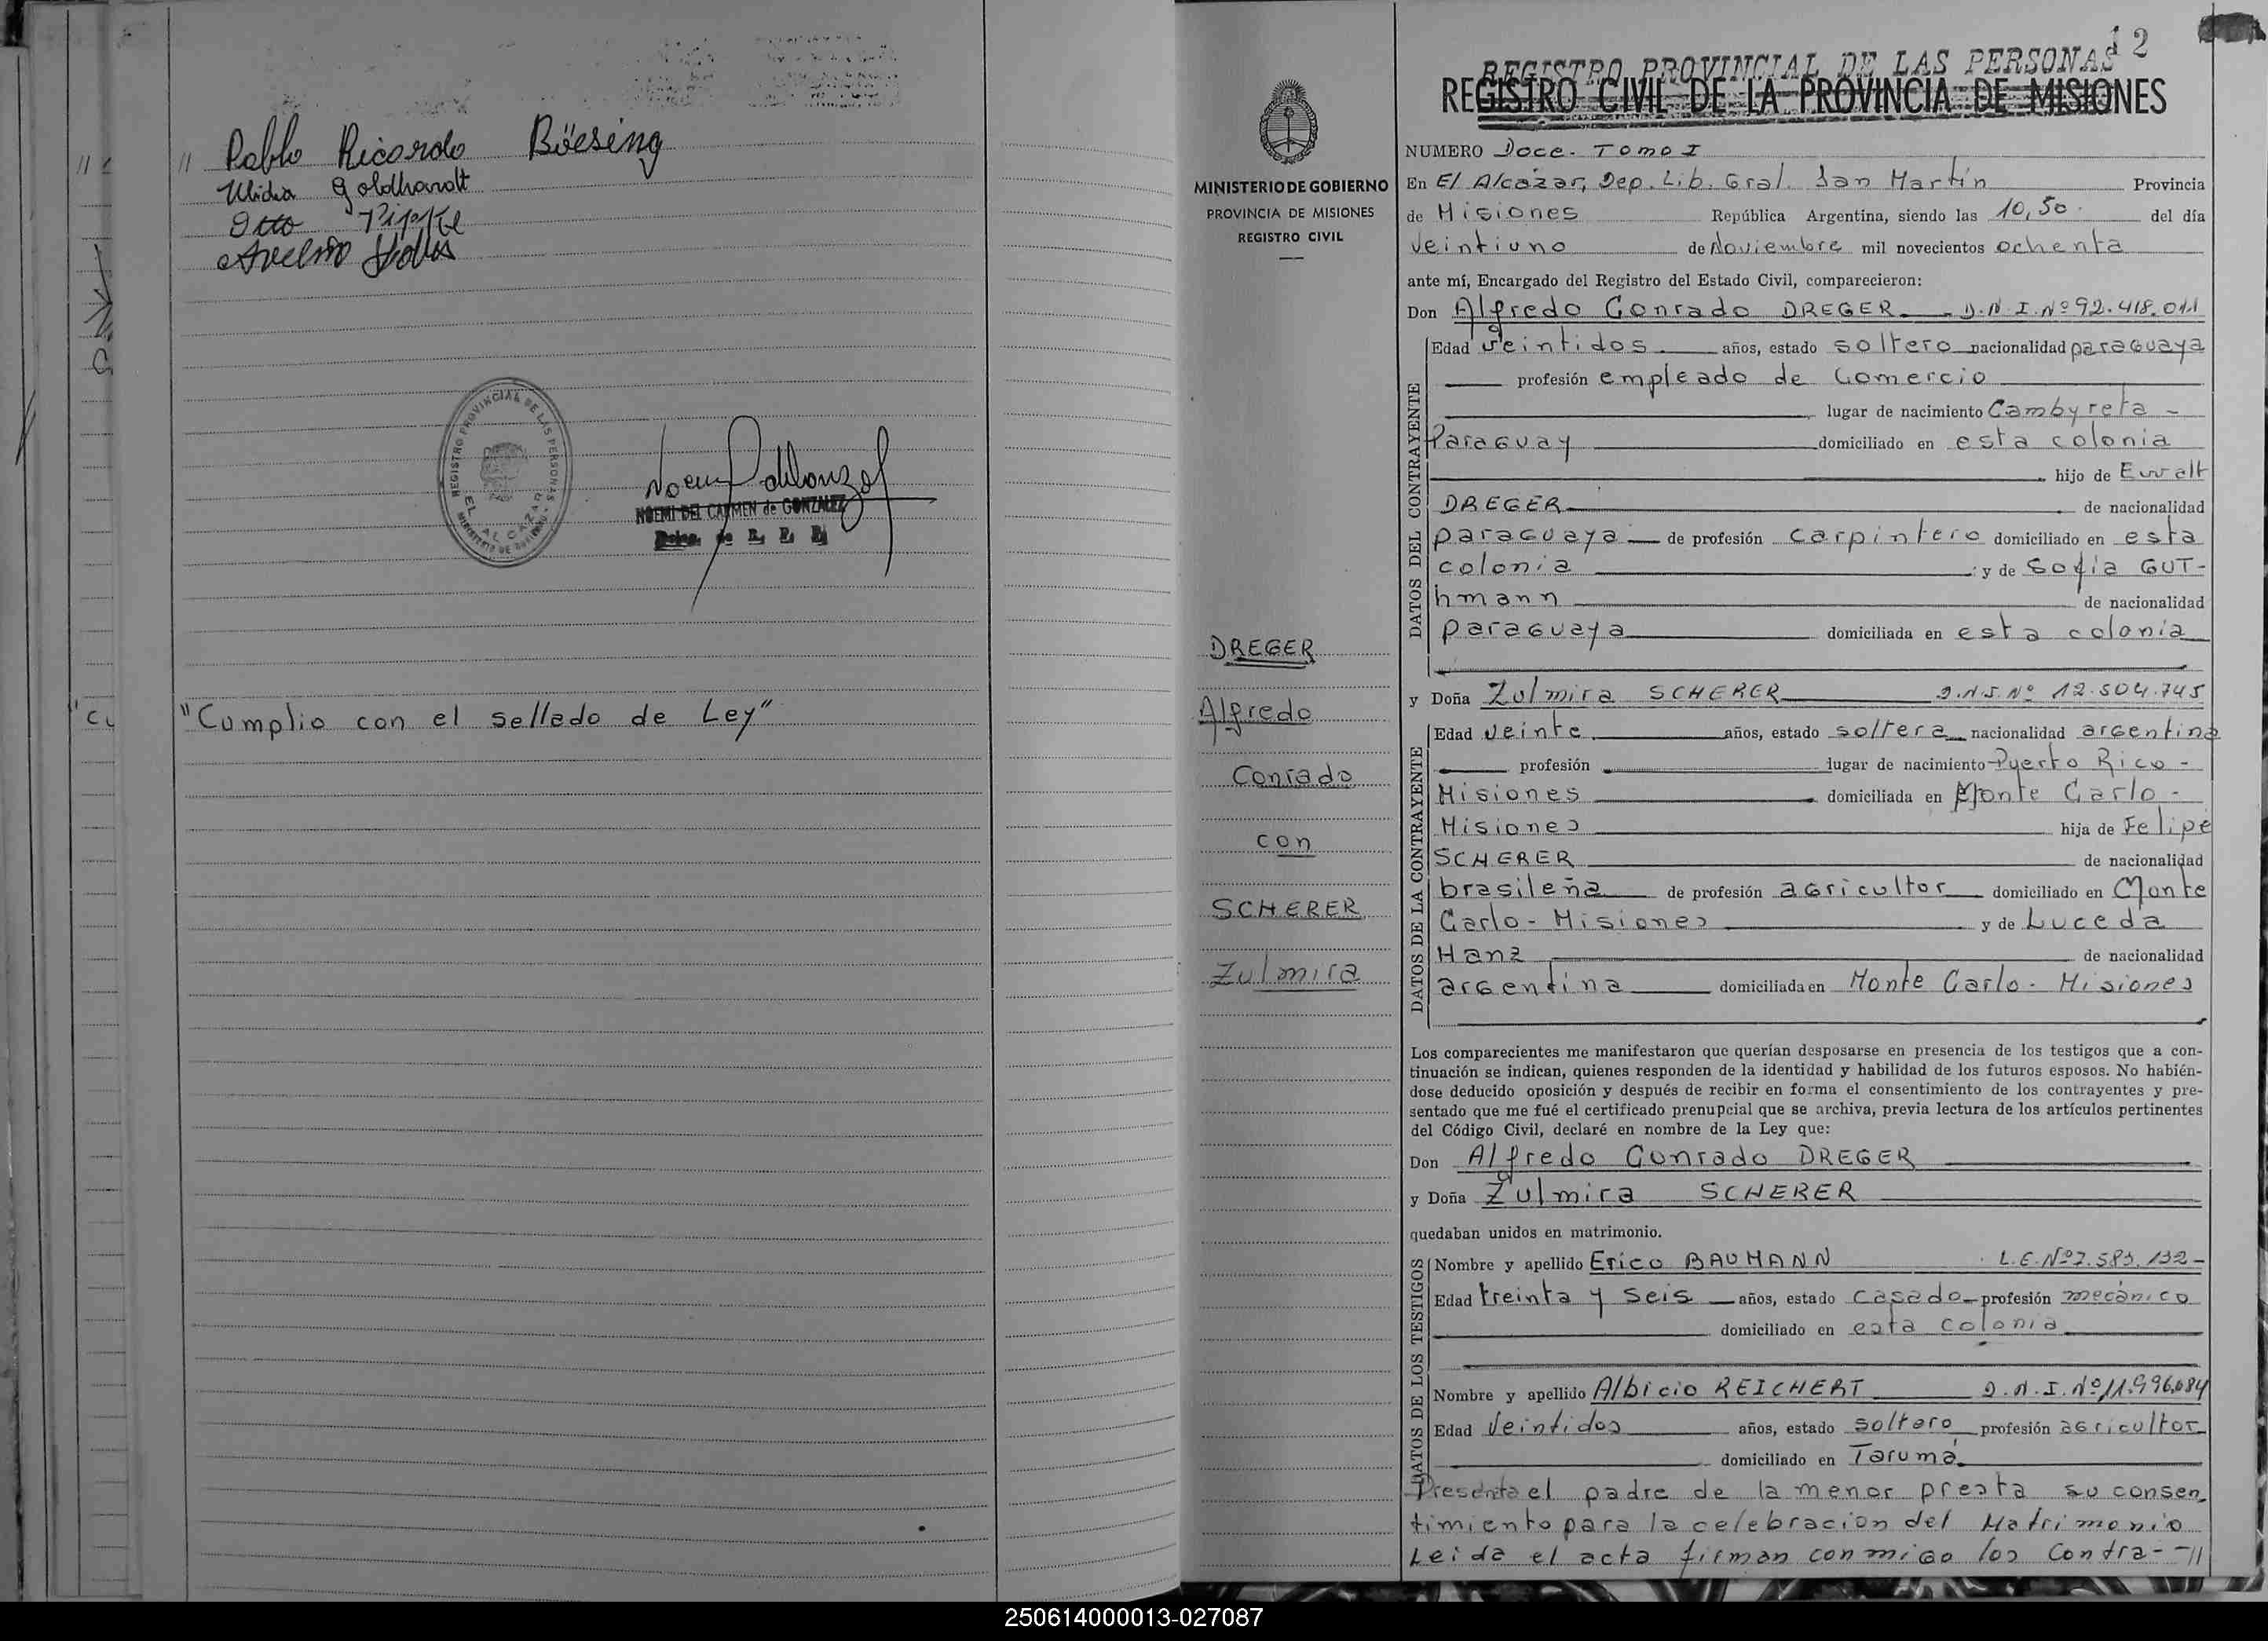 // Pablo Ricardo Böesing
Goldhardt
Otto
Avelino
REGISTRO PROVINCIAL DE LAS PERSONAS
EL ALCAZAR
NOEMI DEL CARMEN de GONZALEZ
"Cumplio con el sellado de Ley"
12
REGISTRO PROVINCIAL DE LAS PERSONAS
REGISTRO CIVIL DE LA PROVINCIA DE MISIONES
MINISTERIO DE GOBIERNO
PROVINCIA DE MISIONES
REGISTRO CIVIL
DREGER
Alfredo
Conrado
con
SCHERER
Zulmira
NUMERO Doce. Tomo I
En El Alcázar, Dep. Lib. Gral. San Martín Provincia
de Misiones República Argentina, siendo las 10,50 del día
veintiuno de Noviembre mil novecientos ochenta
ante mí, Encargado del Registro del Estado Civil, comparecieron:
DATOS DEL CONTRAYENTE
Don Alfredo Conrado DREGER D.N.I. Nº 92.418.011
Edad veintidos años, estado soltero nacionalidad paraguaya
profesión empleado de Comercio
lugar de nacimiento Cambyreta -
Paraguay domiciliado en esta colonia
hijo de Ewalt
DREGER de nacionalidad
paraguaya de profesión carpintero domiciliado en esta
colonia y de Sofía GUT-
hmann de nacionalidad
paraguaya domiciliada en esta colonia
DATOS DE LA CONTRAYENTE
y Doña Zulmira SCHERER D.N.I. Nº 12.504.745
Edad veinte años, estado soltera nacionalidad argentina
profesión lugar de nacimiento Puerto Rico -
Misiones domiciliada en Monte Carlo -
Misiones hija de Felipe
SCHERER de nacionalidad
brasileña de profesión agricultor domiciliado en Monte
Carlo - Misiones y de Luceda
Hanz de nacionalidad
argentina domiciliada en Monte Carlo - Misiones
Los comparecientes me manifestaron que querían desposarse en presencia de los testigos que a con-
tinuación se indican, quienes responden de la identidad y habilidad de los futuros esposos. No habién-
dose deducido oposición y después de recibir en forma el consentimiento de los contrayentes y pre-
sentado que me fué el certificado prenupcial que se archiva, previa lectura de los artículos pertinentes
del Código Civil, declaré en nombre de la Ley que:
Don Alfredo Conrado DREGER
y Doña Zulmira SCHERER
quedaban unidos en matrimonio.
DATOS DE LOS TESTIGOS
Nombre y apellido Erico BAUMANN L.E. Nº 7.583.132-
Edad treinta y seis años, estado casado profesión mecánico
domiciliado en esta colonia
Nombre y apellido Albicio REICHERT D.N.I. Nº 11.996.084
Edad veintidos años, estado soltero profesión agricultor
domiciliado en Tarumá
Presente el padre de la menor presta su consen
timiento para la celebración del Matrimonio
Leida el acta firman conmigo los Contra- -//
250614000013-027087